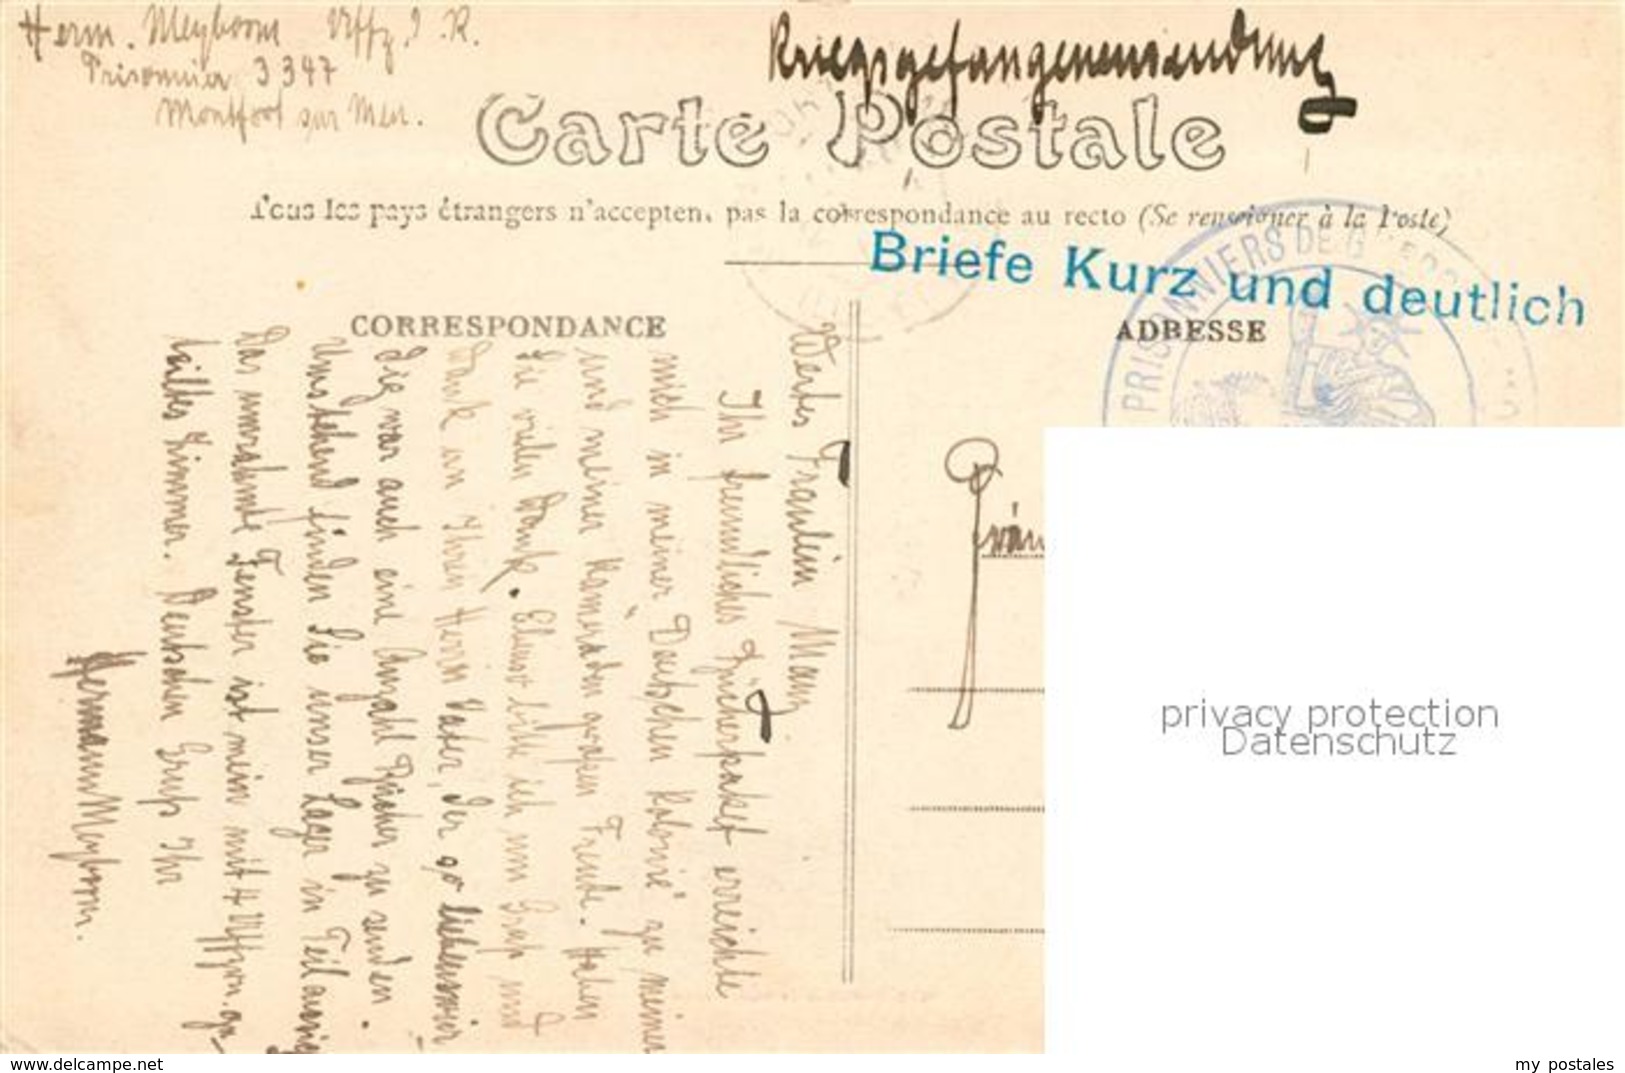 Herm. Meyboom Uffz. d. R.
Prisonnier 3347
Montfort sur Meu.
Kriegsgefangenensendung
Carte Postale
Tous les pays étrangers n'acceptent pas la correspondance au recto (Se renseigner à la Poste)
Briefe Kurz und deutlich
PRISONNIERS DE GUERRE
CORRESPONDANCE
ADRESSE
Wertes Fraulein Many
Ihr freundliches Bücherpaket erreichte
mich in meiner "Deutschen Kolonie" zu meiner
und meiner Kameraden großen Freude. Haben
Sie vielen Dank. Ebenso bitte ich um Gruß und
Dank an Ihren Herrn Vater, der so liebenswür
dig war auch eine Anzahl Bücher zu senden.
Umstehend finden Sie unser Lager in
Das umrahmte Fenster ist mein mit 4 Uffzn. ge-
teiltes Zimmer. Deutschen Gruß Ihr
Hermann Meyboom.
privacy protection
Datenschutz
www.delcampe.net
my_postales